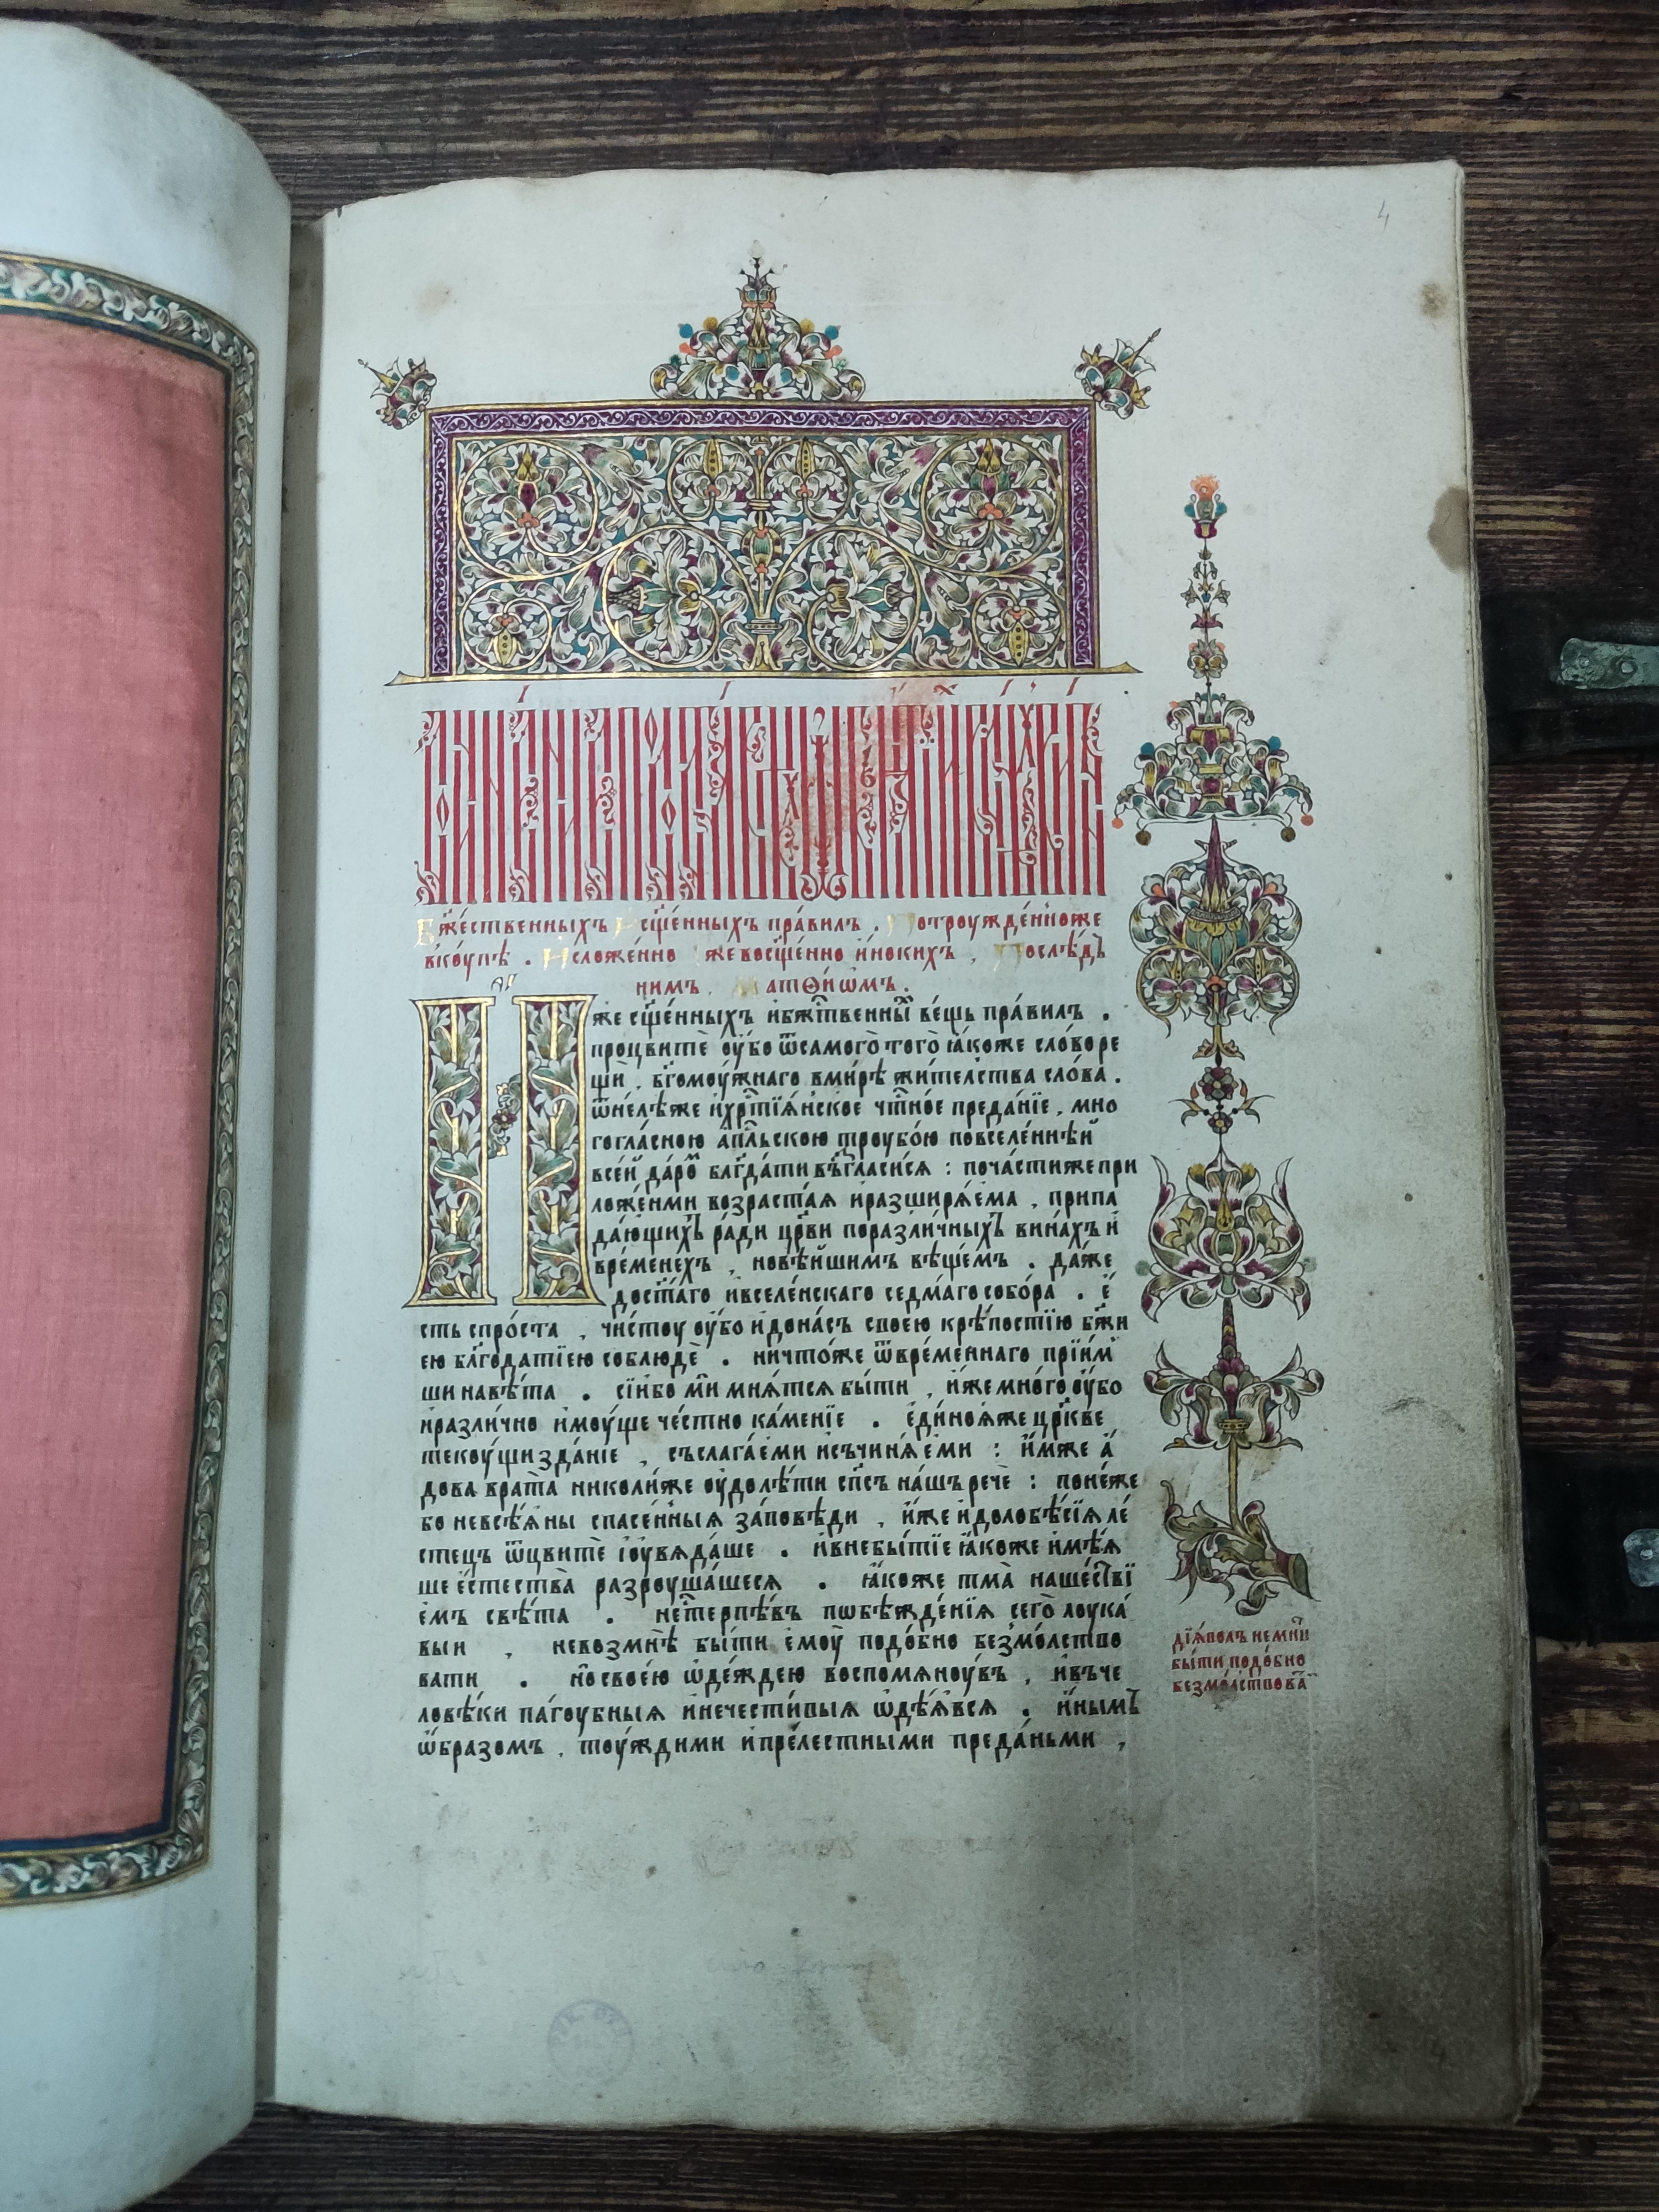 4
Бж҃ественныхъ и сщ҃е́нныхъ пра́вилъ . Потроужде́нноже
вкоу́пѣ . И сложе́нно же восщ҃е́нно и҆́нокихъ , Послѣ́дъ
нимъ , Матѳі́ѡмъ .
же сщ҃е́нныхъ и҆бж҃твенны́ ве́щь пра́вилъ .
процвитѐ оу҆́бо ѿсамого̀ того̀ ꙗ҆́коже сло́во ре
щѝ , бг҃омоу́жнаго вми́рѣ жи́телства сло́ва .
ѿне́лѣже и҆хрⷭ҇тїѧ́нское чⷭ҇тно́е преда́нїе , мно
гогла́сною а҆пⷭ҇льскою троубо́ю повселе́ннѣй
все́й да́ро блг҃да́ти въгласи́сѧ : поча́стиже при
ложе́нми возраста́ѧ и҆разширѧ́ема , припа
да́ющихъ ра́ди цр҃кви поразли́чныхъ вина́хъ и҆
вре́менехъ , новѣ́йшимъ вѣще́мъ . да́же
дост҃а́го и҆вселе́нскаго седма́го собо́ра . є҆́
сть спро́ста , чи́стоу оу҆́бо и҆дона́съ своею крѣ́постїю бж҃и
ею блг҃ода́тїею соблюдѐ . ничто́же ѿвре́меннаго прїи́м
ши навѣ́та . сі́ибо ми мнѧ́тсѧ бы́ти , и҆́же мно́го оу҆́бо
и҆разли́чно и҆моу́ще че́стно ка́менїе . є҆ди́ноѧже цр҃кве
текоу́щи зда́нїе , съслага́еми и҆съчинѧ́еми : и҆́мже а҆́
дова врата̀ николи́же оу҆долѣ́ти сп҃съ на́шъ речѐ : поне́же
бо невсѣ́ѧны спасе́нныѧ за́повѣди , и҆́же и҆́долобѣ́сїѧ ле́
стецъ ѿцвитѐ і҆оувѧда́ше . и҆внебы́тїе ꙗ҆́коже и҆мѣ́ѧ
ше є҆́стества̀ разроуша́шесѧ . ꙗ҆́коже тма̀ наше́ствї
емъ свѣ́та . нестерпѣ́въ пѡбѣжде́нїѧ сего̀ лоука́
выи , невозмнѣ̀ бы́ти є҆моу̀ подо́бно безмо́лство
вати . но свое́ю ѡ҆де́ждею воспомѧноу́въ , и҆въче
ловѣ́ки па́гоубныѧ и҆нечести́выѧ ѡ҆дѣ́ѧвсѧ . и҆ны́мъ
ѡ҆́бразомъ , тоу́ждими и҆пре́лестными преда́ньми ,
дїѧ́волъ не мни́
бы́ти подо́бно
безмо́лствова